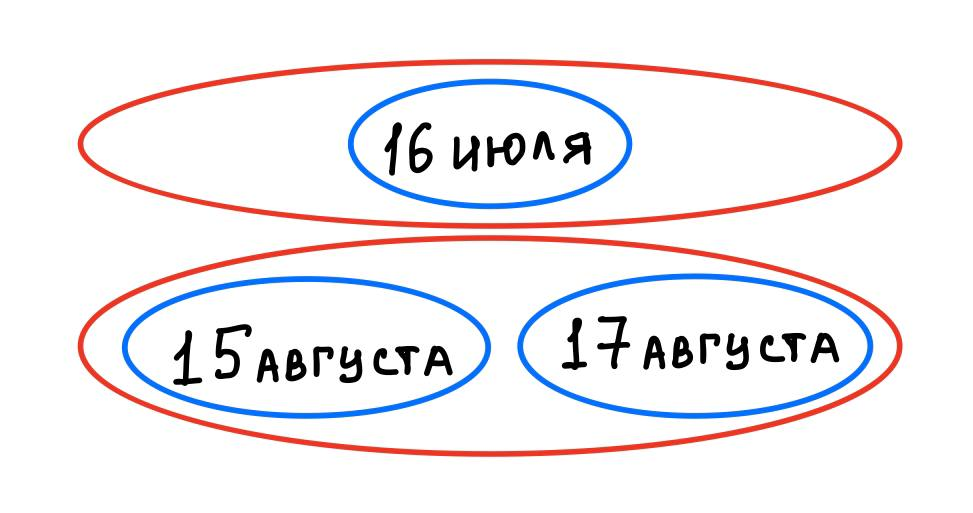 16 июля
15 августа
17 августа